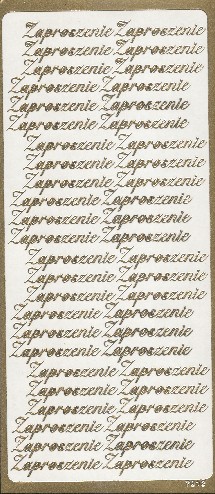 Zaproszenie Zaproszenie
Zaproszenie Zaproszenie
Zaproszenie Zaproszenie
Zaproszenie Zaproszenie
Zaproszenie Zaproszenie
Zaproszenie Zaproszenie
Zaproszenie Zaproszenie
Zaproszenie Zaproszenie
Zaproszenie Zaproszenie
Zaproszenie Zaproszenie
Zaproszenie Zaproszenie
Zaproszenie Zaproszenie
Zaproszenie Zaproszenie
Zaproszenie Zaproszenie
Zaproszenie Zaproszenie
Zaproszenie Zaproszenie
Zaproszenie Zaproszenie
Zaproszenie Zaproszenie
Zaproszenie Zaproszenie
Zaproszenie Zaproszenie
Zaproszenie Zaproszenie
Zaproszenie Zaproszenie
Zaproszenie Zaproszenie
Zaproszenie Zaproszenie